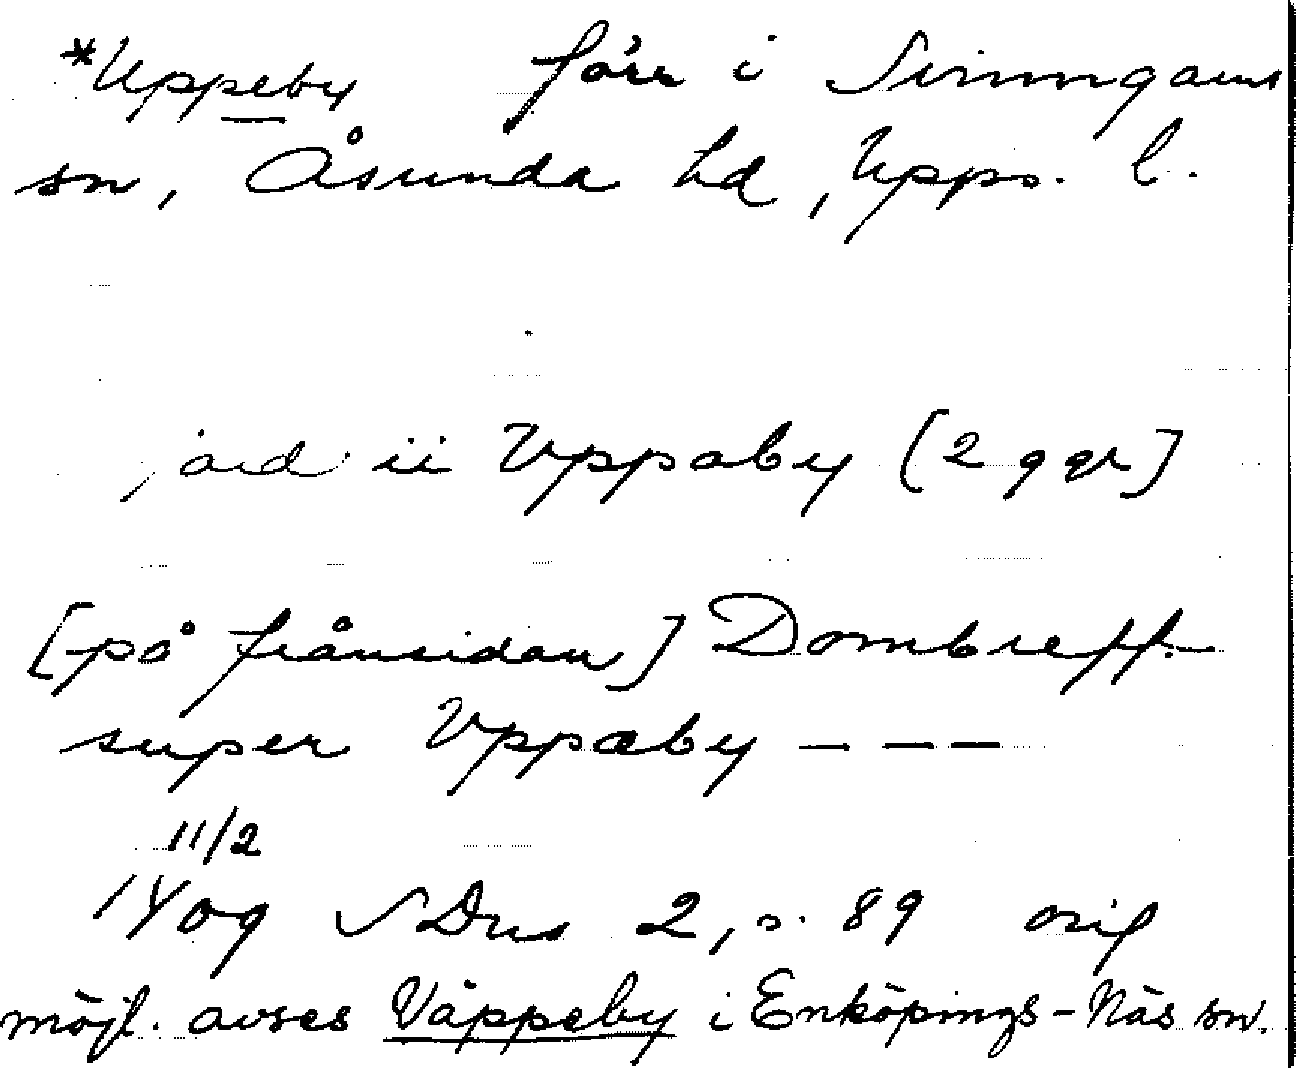 *Uppeby förr i Simngams
sn, Åsunda hd, Upps. l.
jord ii Vppaby [2 ggr]
[på frånsidan] Dombreff
super Vppæby ---
11/2
1409 SDns 2, s. 89 orig
möjl. avses Väppeby i Enköpings-Näs sn.